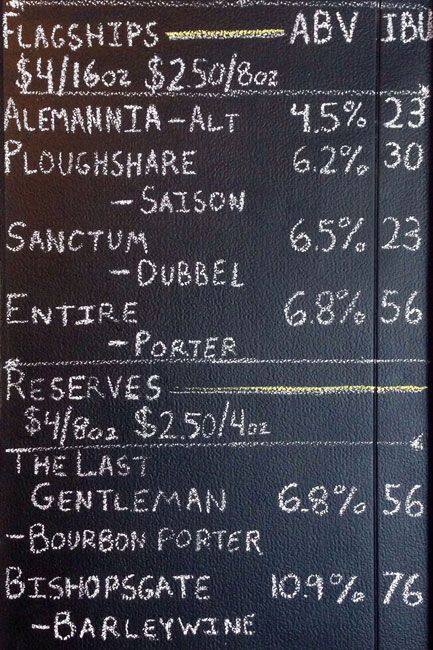 FLAGSHIPS ABV IBU
$4/16oz $2.50/8oz
ALEMANNIA - ALT 4.5% 23
PLOUGHSHARE 6.2% 30
- SAISON
SANCTUM 6.5% 23
- DUBBEL
ENTIRE 6.8% 56
- PORTER
RESERVES
$4/8oz $2.50/4oz
THE LAST
GENTLEMAN 6.8% 56
- BOURBON PORTER
BISHOPSGATE 10.9% 76
- BARLEYWINE